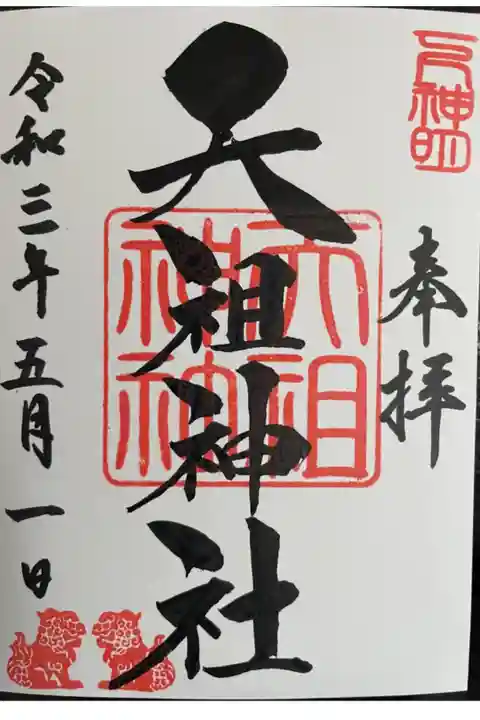 神明
奉拝
天祖神社
天祖
神社
令和三年五月一日